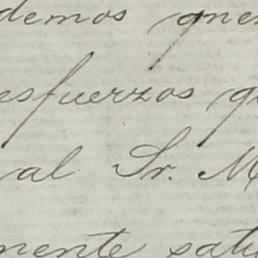 demos que
esfuerzos q
al Sr. M
mente satis